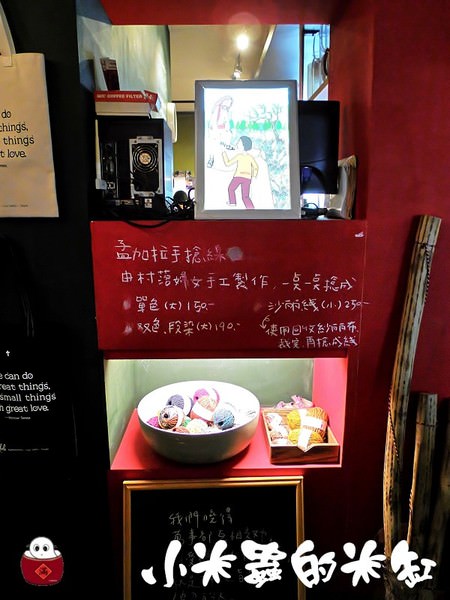 COFFEE FILTER
do
things,
things
great love.
孟加拉手捻線
由村落婦女手工製作,一點一點捻成
單色(大)150.-
沙麗線(小)250.-
双色、段染(大)190.-
使用回收紗麗布,
裁完再捻成線
we can do
great things,
small things
with great love.
我們覺得
小米蟲的米缸